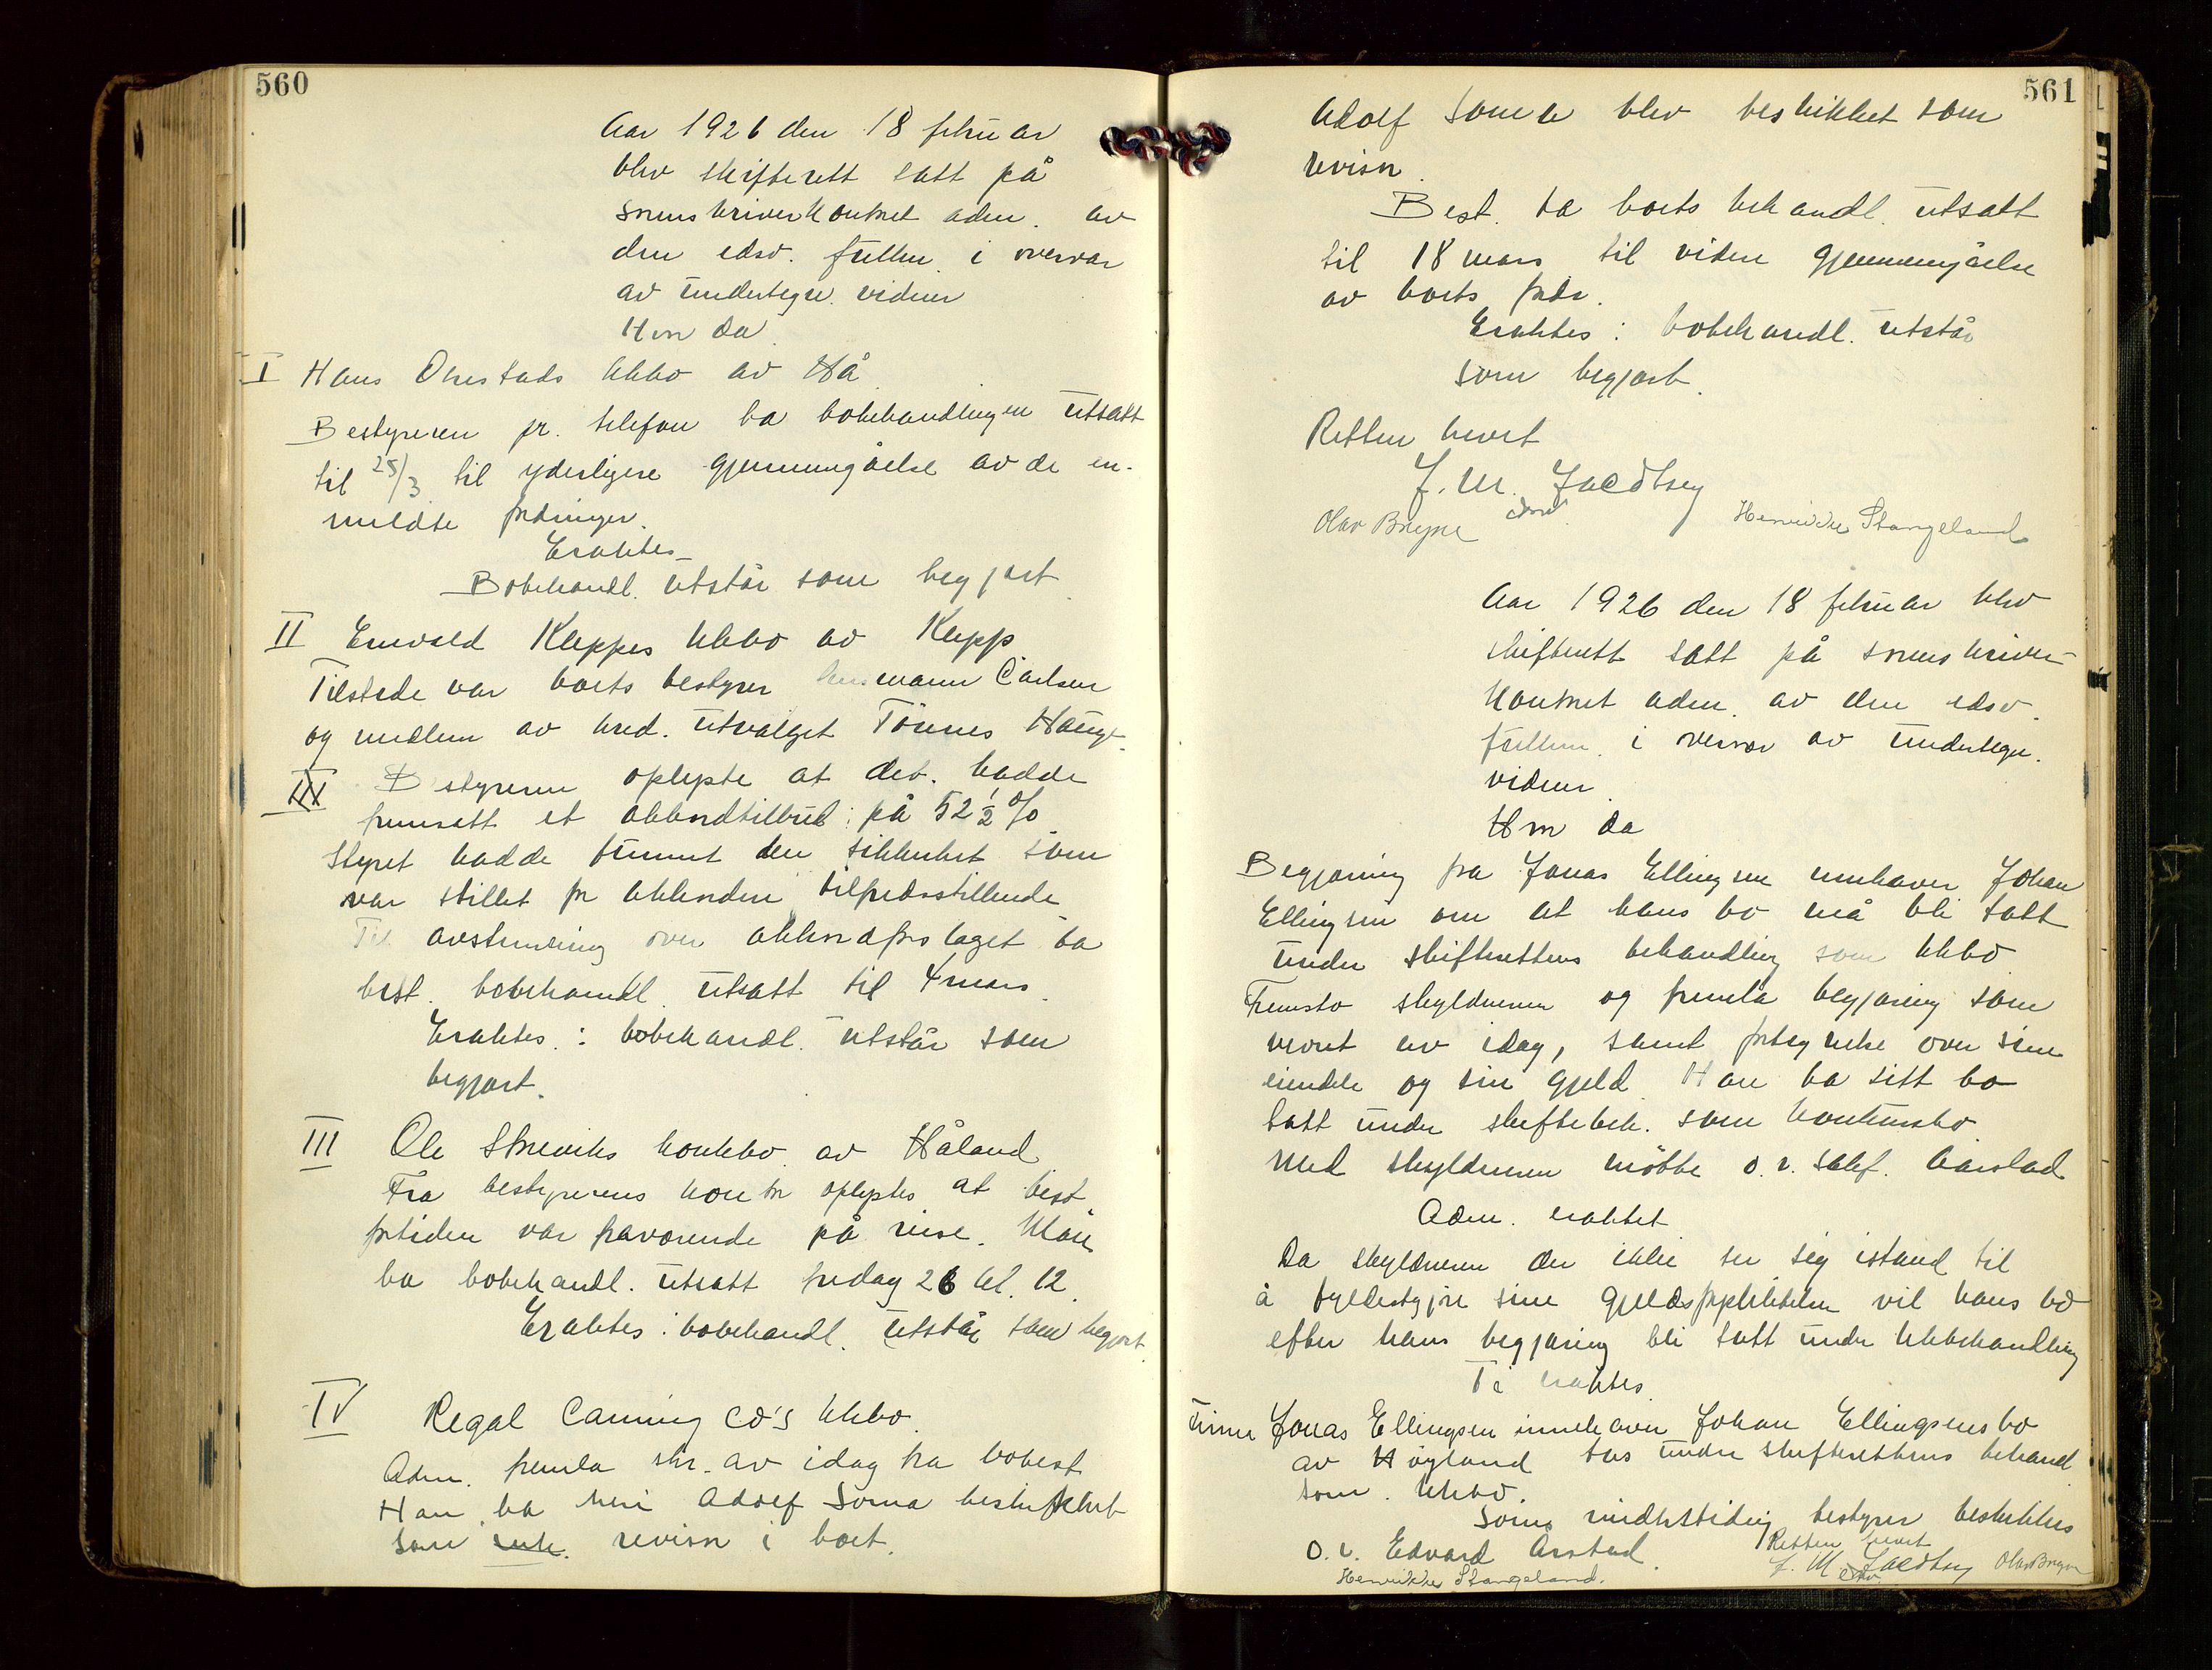 560
Aar 1926 den 18 februar
blev skifterett satt på
sorenskriverkontoret adm. av
den edsv. fullm. i overvær
av undertegn. vidner
Hvor da
I Hans Obrestads kkbo av Hå
Bestyreren pr. telefon ba bobehandlingen utsatt
til 25/3 til yderligere gjennemgåelse av de an-
meldte fordringer.
Eraktes
Bobehandl. utstår som begjært
II Enevald Kleppes kkbo av Klepp
Tilstede var boets bestyrer lensmann Carlsen
og medlem av kred. utvalget Tönnes Hauge.
III Bestyreren oplyste at deb. hadde
fremsatt et akkordtilbud på 52 1/2 %
Styret hadde funnet den sikkerhet som
var stillet for akkorden tilfredsstillende
Til avstemning over akkordforslaget ba
best. bobehandl. utsatt til 4 mars.
Eraktes: bobehandl. utstår som
begjært.
III Ole Skreviks konkbo av Håland
Fra bestyrerens kontor oplystes at best
fortiden var fraværende på reise. Man
ba bobehandl. utsatt fredag 26 kl. 12.
Eraktes: bobehandl. utstår som begjært.
IV Regal Canning Co's kkbo.
Adm. fremla skr. av idag fra bobest
Han ba heri Adolf Soma beskikket
som revisor i boet.
561
Adolf Soma blev beskikket som
revisor.
Best. ba boets behandl. utsatt
til 18 mars til videre gjennemgåelse
av boets fordr.
Eraktes: bobehandl. utstår
som begjært.
Retten hevet
J. M. Jacobsen
edsv.
Olav Bryne Henrikke Stangeland
Aar 1926 den 18 februar blev
skifterett satt på sorenskriver-
kontoret adm. av den edsv.
fullm. i overvær av undertegn.
vidner.
Hvor da
Begjæring fra Jonas Ellingsen innehaver Johan
Ellingsen om at hans bo må bli tatt
under skifterettens behandling som kkbo
Fremsto skyldneren og fremla begjæring som
nevnt av idag, samt fortegnelse over sine
eiendele og sin gjeld. Han ba sitt bo
tatt under skiftebeh. som konkursbo.
Med skyldneren møtte o.r. sakf. Aarstad
Adm. eraktet
Da skyldneren der ikke ser sig istand til
å fyldestgjøre sine gjeldsforpliktelser vil hans bo
efter hans begjæring bli tatt under kkbehandling
Ti eraktes
Firma Jonas Ellingsen innehaver Johan Ellingsens bo
av Høyland tas under skifterettens behand
som kkbo.
Som midlertidig bestyrer beskikkes
o.r. Edvard Årstad.
Retten hevet
J. M. Jacobsen Olav Bryne
edsv.
Henrikke Stangeland.